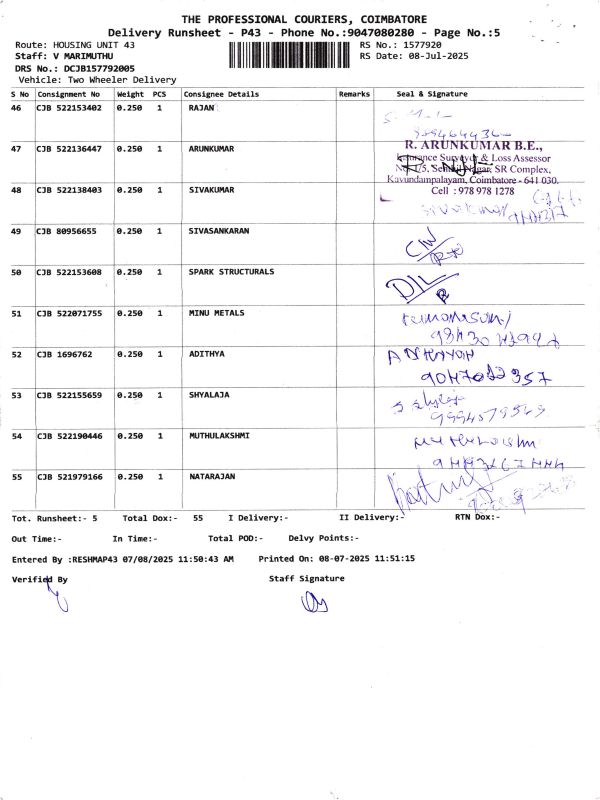 THE PROFESSIONAL COURIERS, COIMBATORE
Delivery Runsheet - P43 - Phone No.:9047080280 - Page No.:5
Route: HOUSING UNIT 43 RS No.: 1577920
Staff: V MARIMUTHU RS Date: 08-Jul-2025
DRS No.: DCJB157792005
Vehicle: Two Wheeler Delivery
S No Consignment No Weight PCS Consignee Details Remarks Seal & Signature
46 CJB 522153402 0.250 1 RAJAN
47 CJB 522136447 0.250 1 ARUNKUMAR
R. ARUNKUMAR B.E.,
Insurance Surveyor & Loss Assessor
SR Complex,
Kavundampalayam, Coimbatore - 641 030.
Cell : 978 978 1278
48 CJB 522138403 0.250 1 SIVAKUMAR
49 CJB 80956655 0.250 1 SIVASANKARAN
50 CJB 522153608 0.250 1 SPARK STRUCTURALS
51 CJB 522071755 0.250 1 MINU METALS
52 CJB 1696762 0.250 1 ADITHYA
53 CJB 522155659 0.250 1 SHYALAJA
54 CJB 522190446 0.250 1 MUTHULAKSHMI
55 CJB 521979166 0.250 1 NATARAJAN
Tot. Runsheet:- 5 Total Dox:- 55 I Delivery:- II Delivery:- RTN Dox:-
Out Time:- In Time:- Total POD:- Delvy Points:-
Entered By :RESHMAP43 07/08/2025 11:50:43 AM Printed On: 08-07-2025 11:51:15
Verified By Staff Signature